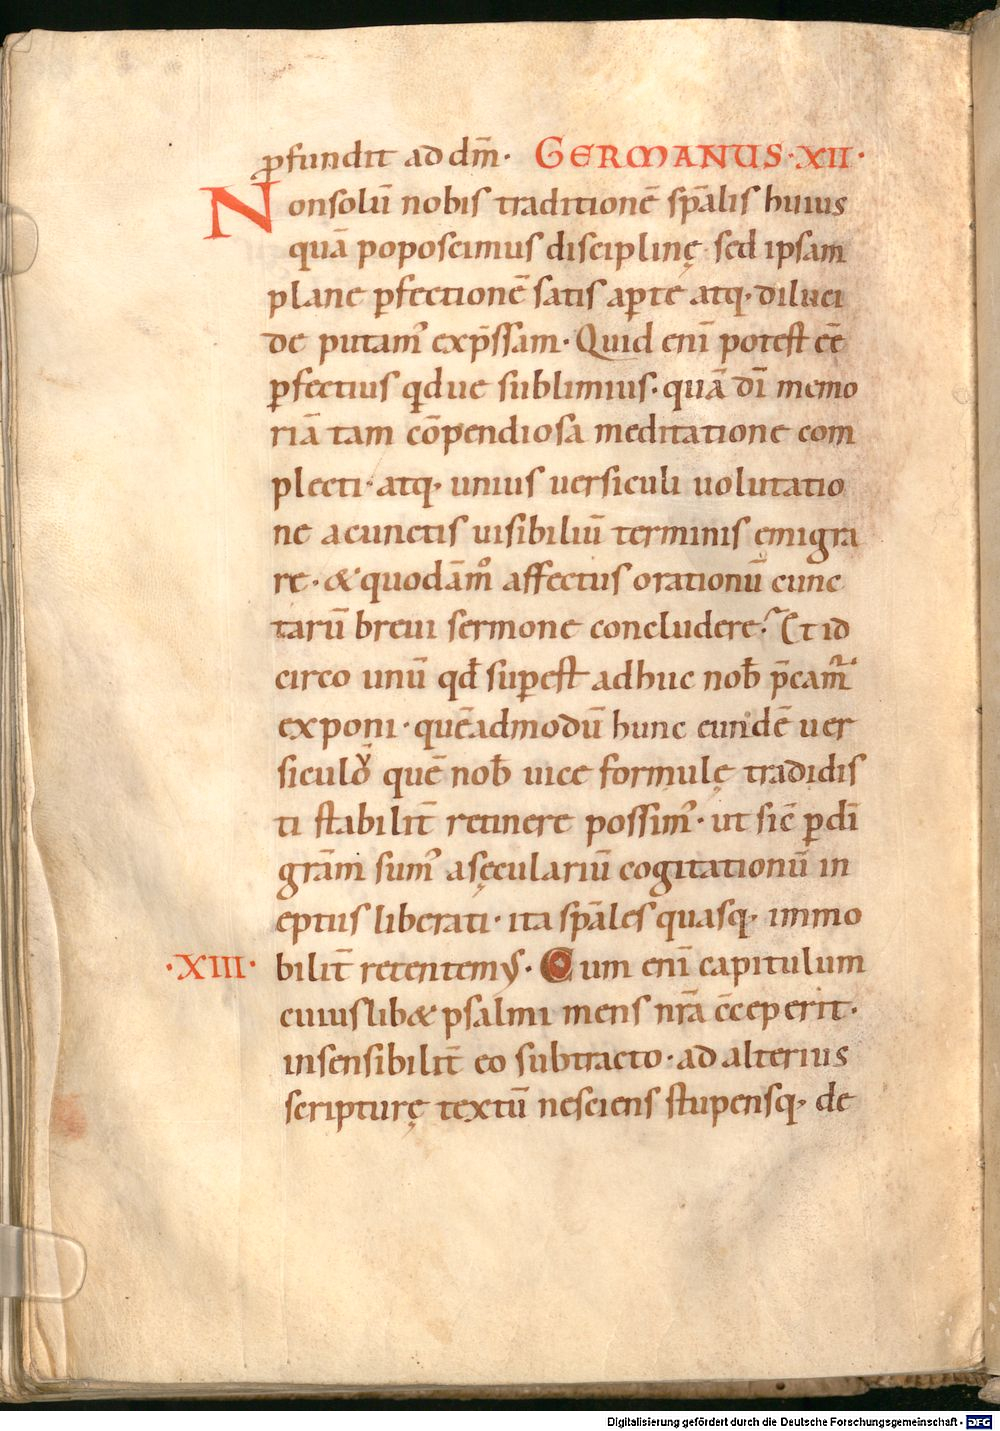 ꝓfundit ad dm̄· GERMANUS·XII·
Nonsolū nobis traditionē sp̄alis huius
quā poposcimus disciplinę· sed ipsam
plane ꝑfectionē satis aꝑte atq· diluci
de putam' exp̄ssam· Quid eni᷒̄ potest eē
ꝑfectius qdue sublimius· quā dī memo
riā tam cōpendiosa meditatione com
plecti· atq· unius uersiculi uolutatio
ne acunctis uisibiliū terminis emigra
re· & quodāmͦ affectus orationū cunc
tarū breui sermone concludere? Et id
circo unū qđ suꝑest adhuc nob̄ p̄camꝛ᷒
exponi· quēadmodū hunc eundē uer
siculū quē nob̄ uice formulę tradidis
ti stabilit̄ retinere possim'· ut sic̄ ꝑdī
grām sum' asęculariū cogitationū in
eptus liberati· ita sp̄ales quasq· immo
·XIII· bilit̄ retentemꝰ· Cum enī capitulum
cuiuslib& psalmi mens nr̄a c̄ceperit·
insensibilit̄ eo subtracto· ad alterius
scripturę textū nesciens stupensq· de
Digitalisierung gefördert durch die Deutsche Forschungsgemeinschaft - DFG